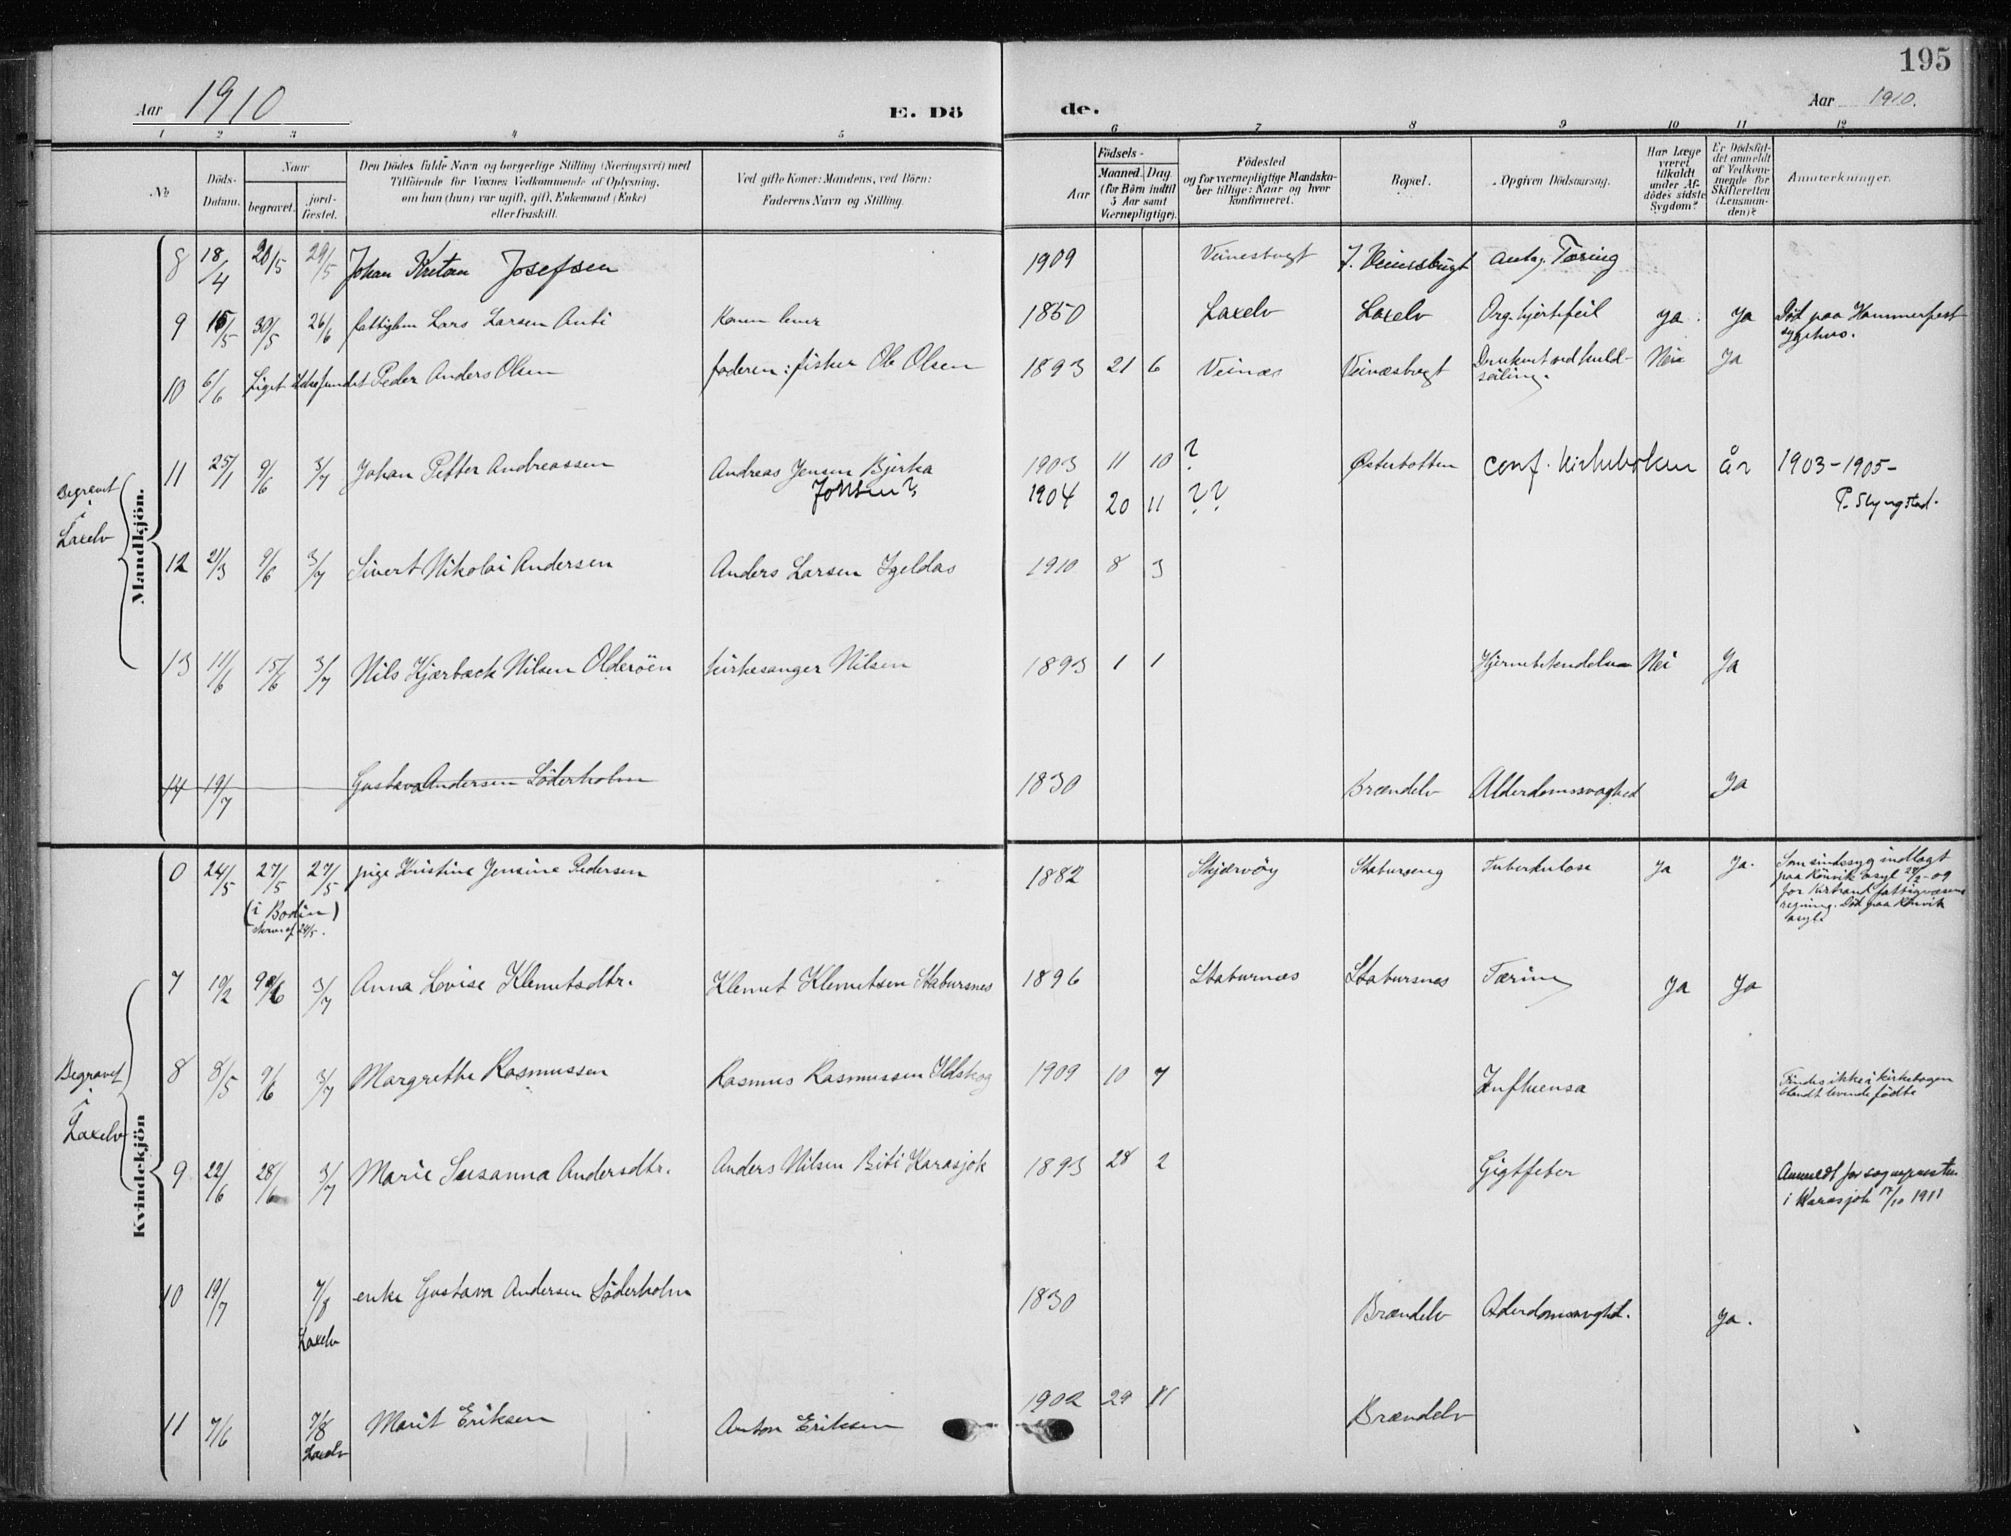 195
Aar 1910
E. Dö de.
Aar 1910.
1 2 3 4 5 6 7 8 9 10 11 12
No
Döds-Datum.
Naar
begravet.
jord-fæstet.
Den Dödes fulde Navn og borgerlige Stilling (Næringsvei) med
Tilföiende for Voxnes Vedkommende af Oplysning,
om han (hun) var ugift, gift, Enkemand (Enke)
eller fraskilt.
Ved gifte Koner: Mandens, ved Börn:
Faderens Navn og Stilling.
Födsels-
Aar
Maaned. Dag.
(for Börn indtil
5 Aar samt
Værnepligtige).
Födested
og for værnepligtige Mandska-
ber tillige: Naar og hvor
konfirmeret.
Bopæl.
Opgiven Dödsaarsag.
Har Læge
været
tilkaldt
under Af-
dödes sidste
Sygdom?
Er Dödsfal-
det anmeldt
af Vedkom-
mende for
Skifteretten
(Lensman-
den)?
Anmærkninger.
Mandkjön.
Begravet
i
Laxelv
8 18/4 20/5 29/5 Johan Josefsen 1909 Veinesbugt Tæring
9 15/5 30/5 26/6 fattiglem Lars Larsen Anti Konen lever 1850 Laxelv Laxelv Org. hjertefeil ja Ja Död paa Hammerfest
sygehus.
10 6/6 Liget ikke fundet Peder Anders Olsen faderen: fisker Ole Olsen 1893 21 6 Veines Veinæsbugt Druknet ved
seiling. Nei Ja
11 25/1 9/6 3/7 Johan Petter Andreassen Andreas Jensen Bjerka 1903 11 10 ? Østerbotten conf. Kirkeboken år 1903-1905-
Johnsen? 1904 20 11 ?? P.
12 2/3 9/6 3/7 Sivert Nikolai Andersen Anders Larsen Igeldas 1910 8 3
13 11/6 15/6 3/7 Nils Kjærbeck Nilsen Olderöen kirkesanger Nilsen 1893 1 1 Nei Ja
14 19/7 Gustava Andersen Söderholm 1830 Brændelv Alderdomssvaghed Ja
Kvindekjön
Begravet
i
Laxelv
0 24/5 27/5 27/5 pige Kristine Jensine Pedersen 1882 Skjærvöy Tuberkulose Ja Ja. Som sindssyg indlagt
(i Bodin) paa Rönvik asyl
for Kistrand fattigvæsens
regning. Död paa Rönvik
asyl
7 19/2 9/6 3/7 Anna Lovise Klemetsdtr. Klemet Klemetsen Stabursnes 1896 Stabursnes Stabursnes Tæring Ja Ja
8 8/5 9/6 3/7 Margrethe Rasmussen Rasmus Rasmussen Ildskog 1909 10 7 Influensa Findes ikke i kirkebogen
blandt levende födte
9 22/6 28/6 3/7 Marie Susanna Andersdtr. Anders Nilsen Biti Karasjok 1893 28 2 Gigtfeber Anmeldt for sognepresten
i Karasjok 17/10 1911
10 19/7 7/8 enke Gustava Andersen Söderholm 1830 Brændelv Alderdomssvaghed. Ja.
Laxelv
11 7/6 7/8 Marit Eriksen Anton Eriksen 1902 29 11 Brændelv
Laxelv